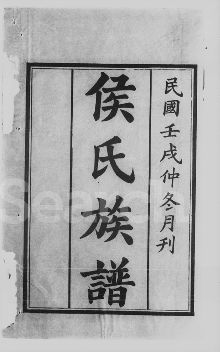 民國壬戌仲冬月刊
侯氏族譜